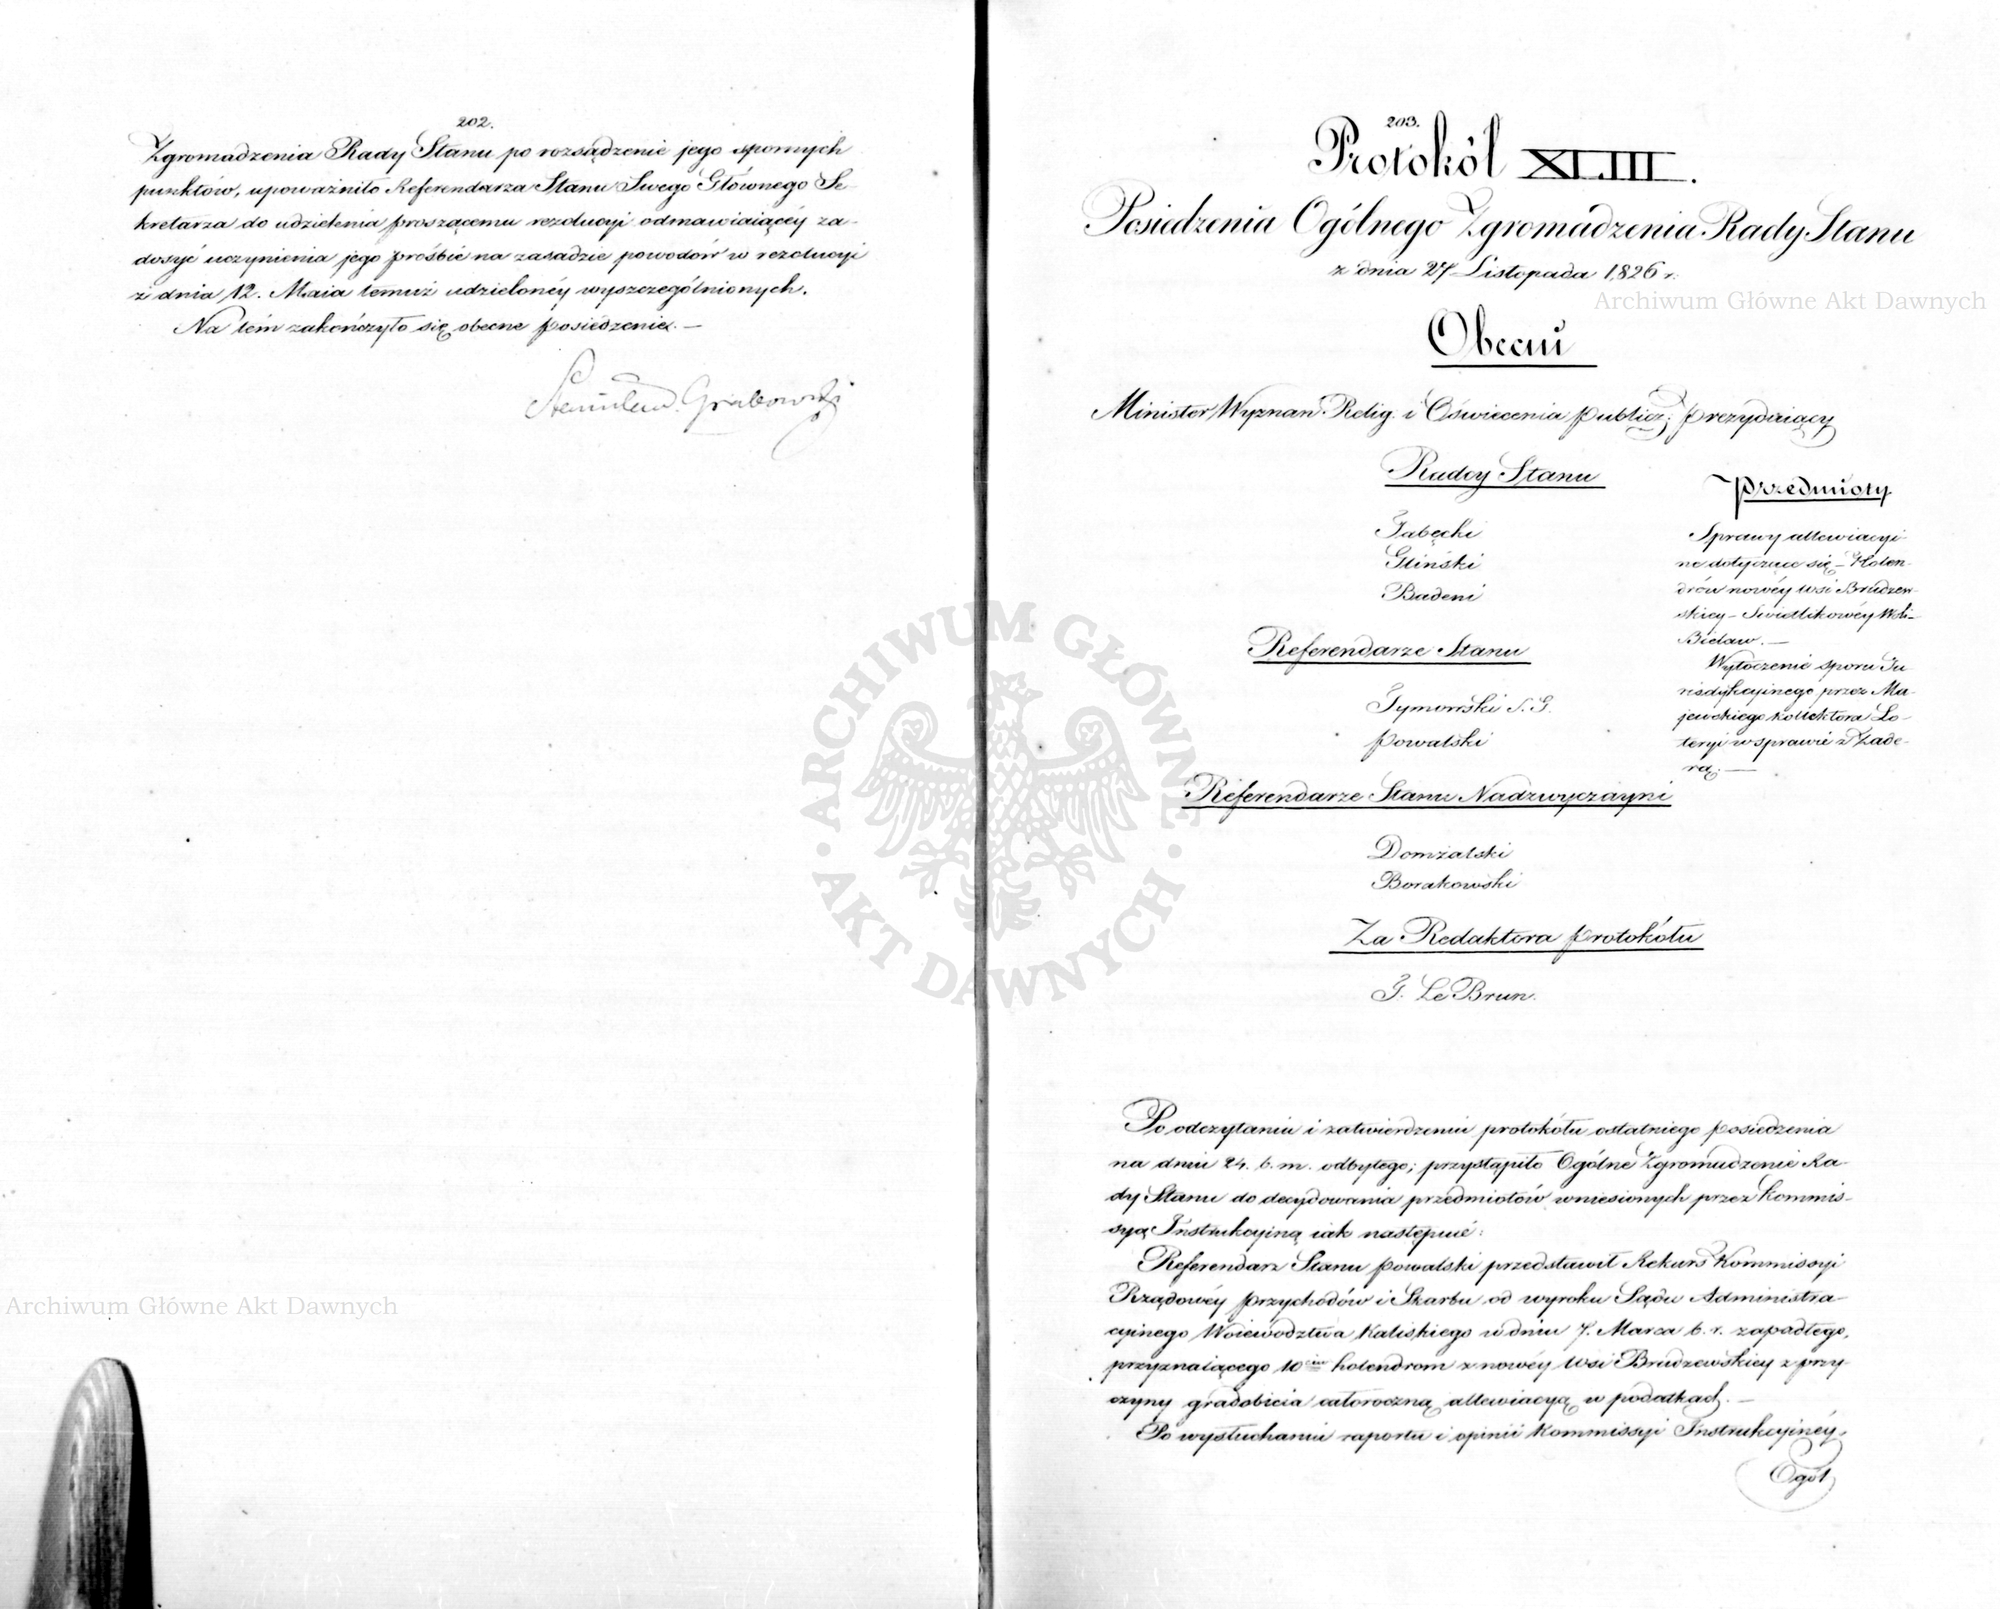 202.
Zgromadzenia Rady Stanu po rozsądzenie jego spornych
punktów, upoważniło Referendarza Stanu Swego Głównego Se-
kretarza do udzielenia proszącemu rezolucyi odmawiaiącéy za-
dosyć uczynienia jego prośbie na zasadzie powodów w rezolucyi
z dnia 12. Maia temuż udzielonéy wyszczególnionych.
Na tém zakończyło się obecne posiedzenie. —
Stanisław Grabowski
203.
Protokół XLIII.
Posiedzenia Ogólnego Zgromadzenia Rady Stanu
z dnia 27 Listopada 1826 r.
Obecni
Minister Wyznań Relig. i Oświecenia publicz: prezydujący
Radcy Stanu
Gliński
Badeni
Referendarze Stanu
Tymowski S. G.
Powalski
Referendarze Stanu Nadzwyczayni
Domżalski
Borakowski
Za Redaktora protokółu
J. Le Brun.
Przedmioty
Sprawy allewiacyi-
ne dotyczące się – Holen-
drów nowéy wsi Brudzew-
skiey – Swietlikowéy Woli –
Bielaw. —
Wytoczenie sporu Ju-
risdykcyjnego przez Ma-
jewskiego kollektora Lo-
teryi w sprawie z Zade-
rą. —
Po odczytaniu i zatwierdzeniu protokółu ostatniego posiedzenia
na dniu 24. b. m. odbytego; przystąpiło Ogólne Zgromadzenie Ra-
dy Stanu do decydowania przedmiotów wniesionych przez Kommis-
syą Instrukcyiną iak następuie:
Referendarz Stanu Powalski przedstawił Rekurs Kommissyi
Rządowéy Przychodów i Skarbu od wyroku Sądu Administra-
cyinego Woiewództwa Kaliskiego w dniu 7. Marca b. r. zapadłego,
przyznaiącego 10ciu holendrom z nowéy wsi Brudzewskiey z przy-
czyny gradobicia całoroczną allewiacyą w podatkach. —
Po wysłuchaniu raportu i opinii Kommissyi Instrukcyinéy
Ogół
Archiwum Główne Akt Dawnych
Archiwum Główne Akt Dawnych
ARCHIWUM GŁÓWNE · AKT DAWNYCH ·